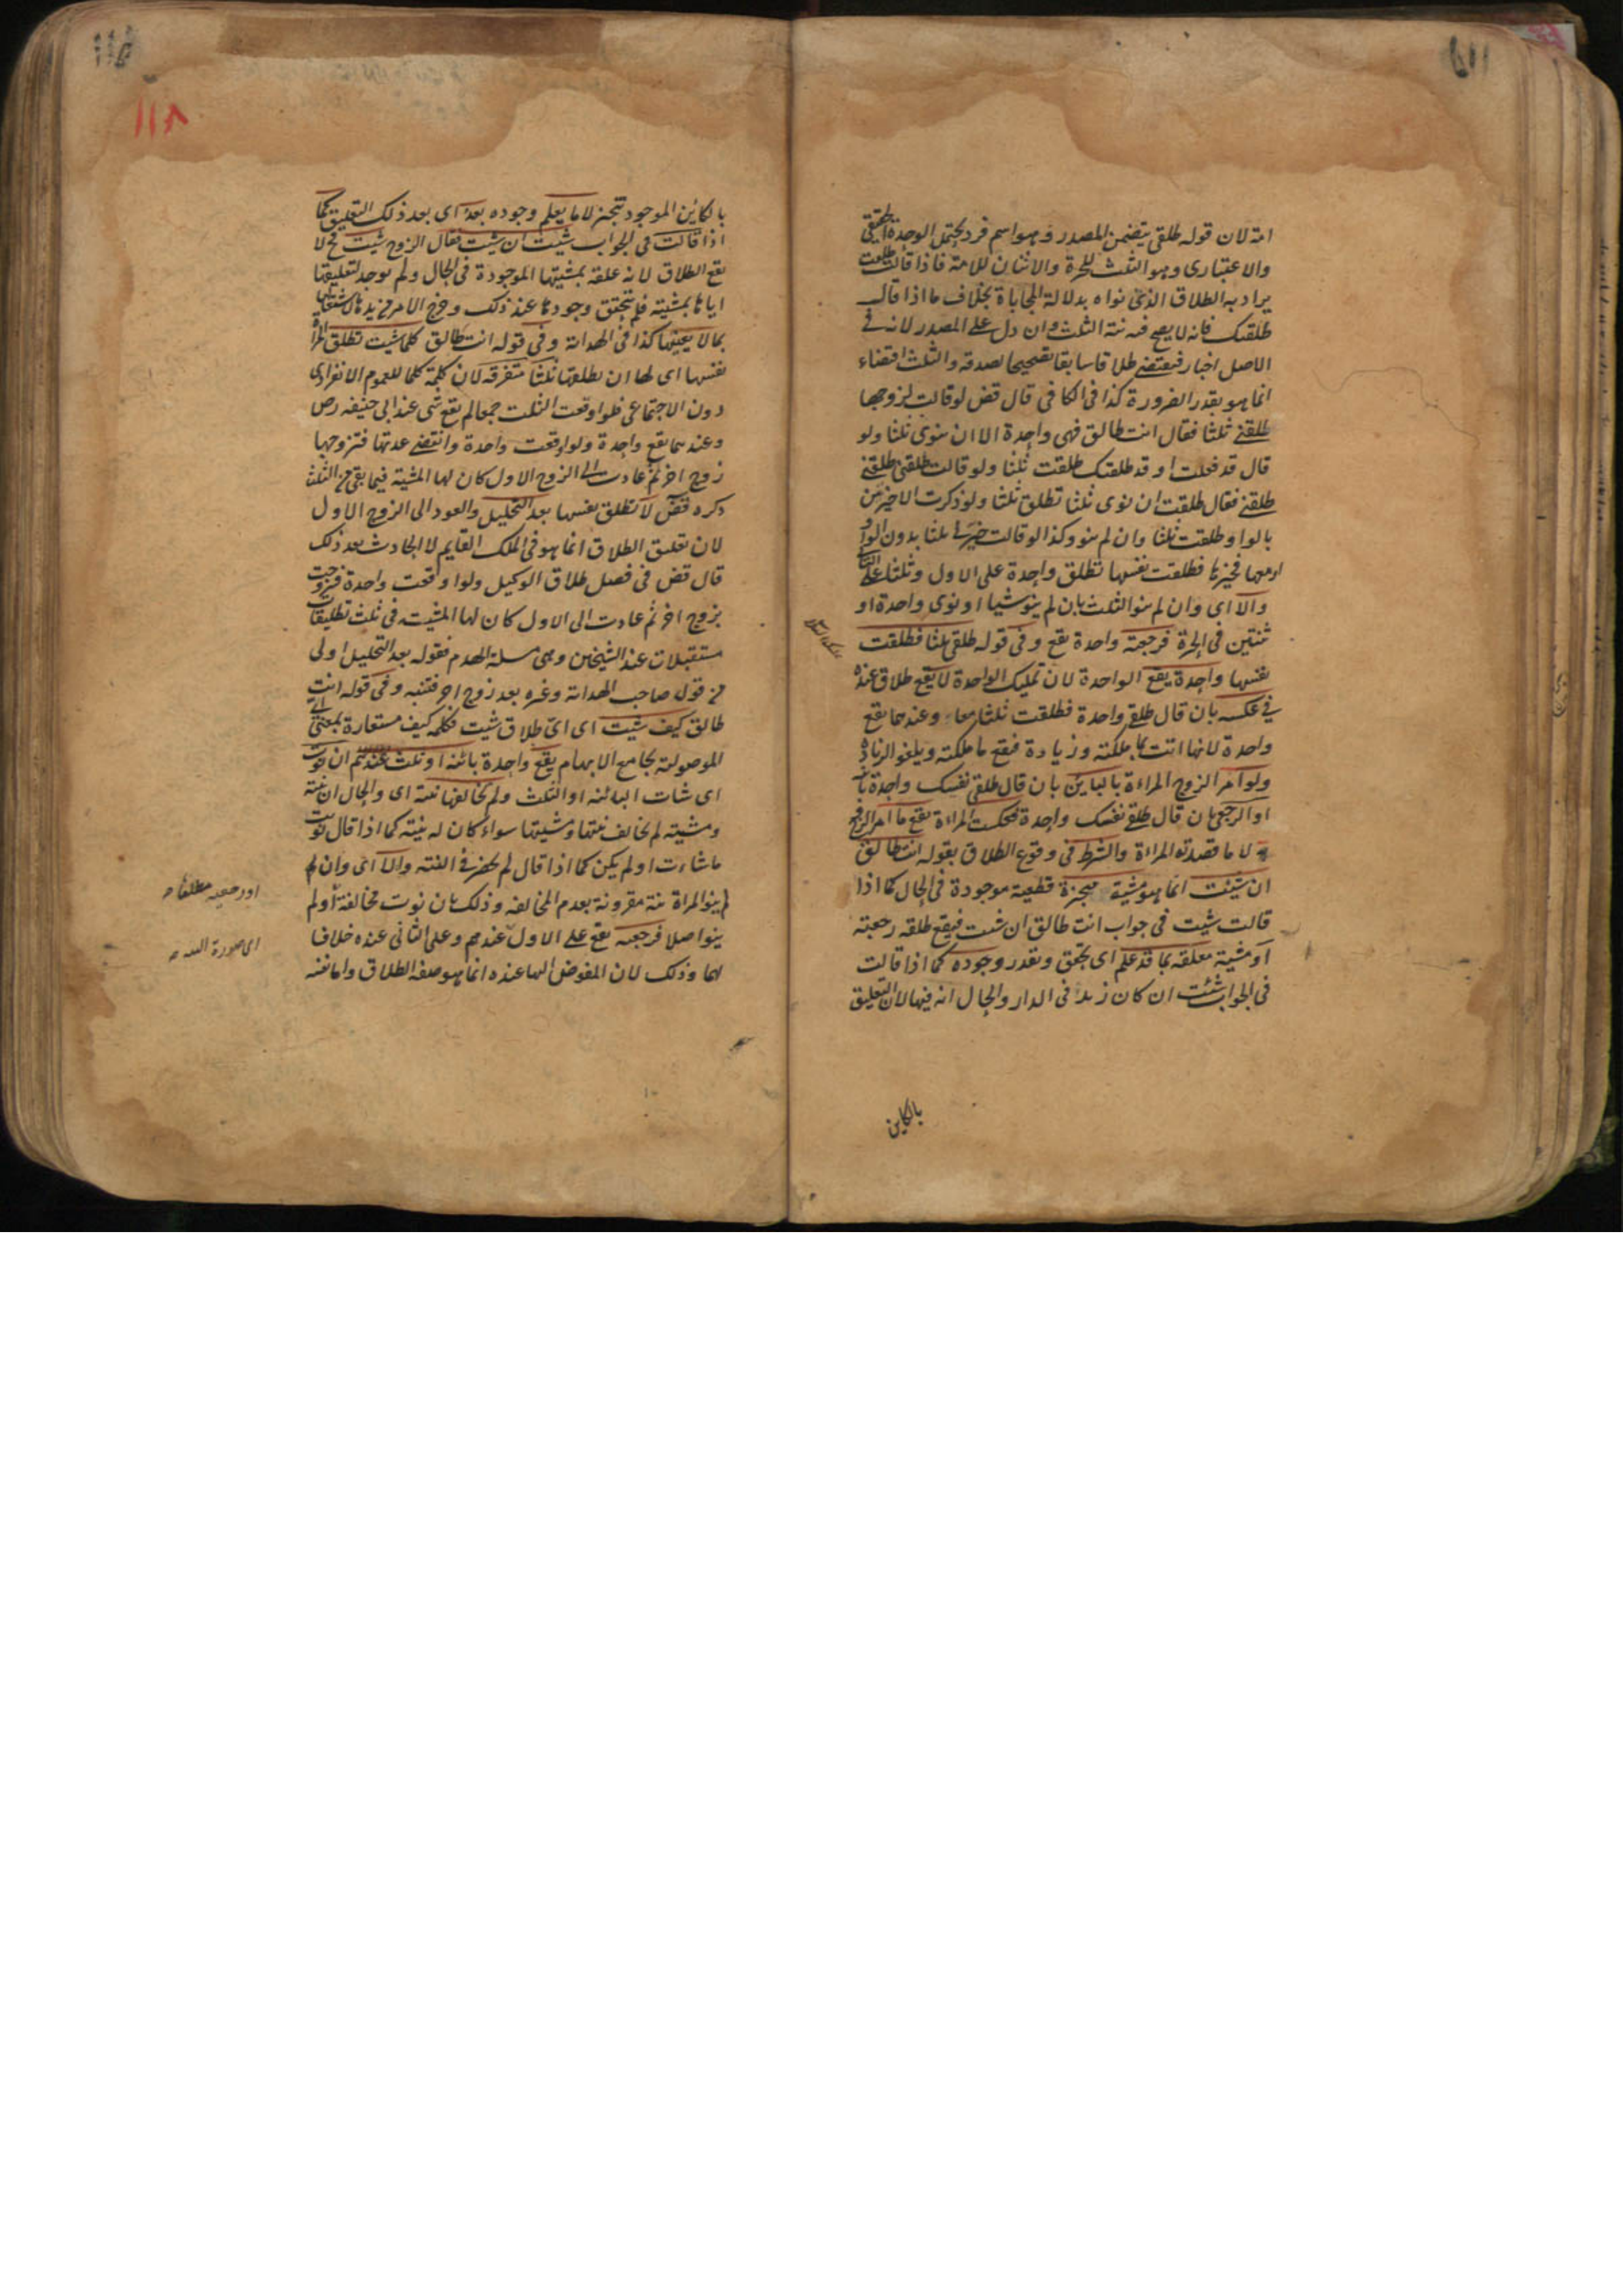 امة لان قوله طلقي يتضمن المصدر وهو اسم فرد يحتمل الوحدة الحقيقي
والاعتبارى وهو الثلث للحرة والاثنان للامة فاذا قالت طلقت
يراد به الطلاق الذى نواه بدلالة المجاباة بخلاف ما اذا قال
طلقتك فانه لا يصح فيه نية الثلث وان دل على المصدر لانه فى
الاصل اخبار فيقتضى طلاقا سابقا تصحيحا لصدقه والثلث اقتضاء
انما هو بقدر الضرورة كذا فى الكافى قال قض لو قالت لزوجها
طلقنى ثلثا فقال انت طالق فهى واحدة الا ان ينوى ثلثا ولو
قال قد فعلت او قد طلقتك طلقت ثلثا ولو قالت طلقنى طلقنى
طلقنى فقال طلقت ان نوى ثلثا تطلق ثلثا ولو ذكرت الاخيرين
بالواو طلقت ثلثا وان لم ينو وكذا لو قالت خيرنى ثلثا بدون الواو
او معها فخيرها فطلقت نفسها تطلق واحدة على الاول وثلثا على الثانى
والا اى وان لم ينو الثلث بان لم ينو شيا او نوى واحدة او
ثنتين فى الحرة فرجعية واحدة تقع وفى قوله طلقى ثلثا فطلقت
نفسها واحدة يقع الواحدة لان تمليك الواحدة لا يقع طلاق عنده
فى عكسه بان قال طلقى واحدة فطلقت ثلثا معا وعندهما تقع
واحدة لانها اتت بما ملكته وزيادة فيقع ما ملكته ويلغو الزيادة
ولو امر الزوج المراءة بالباين بان قال طلقى نفسك واحدة باينة
او الرجعى بان قال طلقى نفسك واحدة فعكست المراءة يقع ما امر الزوج
به لا ما قصدته المراءة والشرط فى وقوع الطلاق بقوله انت طالق
ان شيئت انما هو مشية منجزة قطعية موجودة فى الحال كما اذا
قالت شيت فى جواب انت طالق ان شيت فيقع طلقة رجعية
او مشية معلقة بما قد علم اى تحقق وتقدر وجوده كما اذا قالت
فى الجواب شئت ان كان زيد فى الدار والحال انه فيها لان التعليق
بالكاين
١١٨
بالكائن الموجود تنجيز لا ما يعلم وجوده بعد اى بعد ذلك التعليق كما
اذا قالت فى الجواب شيت ان شيت فقال الزوج شيت فح لا
يقع الطلاق لانه علقه بمشيتها الموجودة فى الحال ولم يوجد لتعليقها
اياها بمشيته فلم يتحقق وجودها عند ذلك وخرج الامر من يدها لاشتغالها
بما لا يعنيها كذا فى الهداية وفى قوله انت طالق كلما شيت تطلق المراة
نفسها اى لها ان تطلقها ثلثا متفرقة لان كلمة كلما للعموم الانفرادى
دون الاجتماعى فلو اوقعت الثلث جمعا لم يقع شى عند ابى حنيفه رض
وعندهما يقع واحدة ولو اوقعت واحدة وانقضى عدتها فتزوجها
زوج اخر ثم عادت الى الزوج الاول كان لها المشية فيما بقى من الثلث
ذكره قض لا تطلق نفسها بعد التحليل والعود الى الزوج الاول
لان تعليق الطلاق انما هو فى الملك القايم لا الحادث بعد ذلك
قال قض فى فصل طلاق الوكيل ولو اوقعت واحدة فتزوجت
بزوج اخر ثم عادت الى الاول كان لها المشيت فى ثلث تطليقات
مستقبلات عند الشيخين وهى مسلة الهدم فقوله بعد التحليل اولى
من قول صاحب الهداية وغيره بعد زوج اخر فتنبه وفى قوله انت
طالق كيف شيت اى اىّ طلاق شيت فكلمه كيف مستعارة بمعنى اى
الموصولة بجامع الابهام يقع واحدة بائنة او ثلث عندهم ان نوت
اى شات البائنة او الثلث ولم يخالفها نيته اى والحال ان نيته
ومشيته لم تخالف نيتها ومشيتها سواء كان له نيته كما اذا قال نويت
ما شاءت او لم يكن كما اذا قال لم يحضرنى النية والا اى وان لم
لم ينو المراة نية مقرونة بعدم المخالفة وذلك بان نوت مخالفة او لم
ينو اصلا فرجعية يقع على الاول عندهم وعلى الثانى عنده خلافا
لهما وذلك لان المفوض اليها عنده انما هو صفة الطلاق واما نفسه
او رجعيه مطلقا